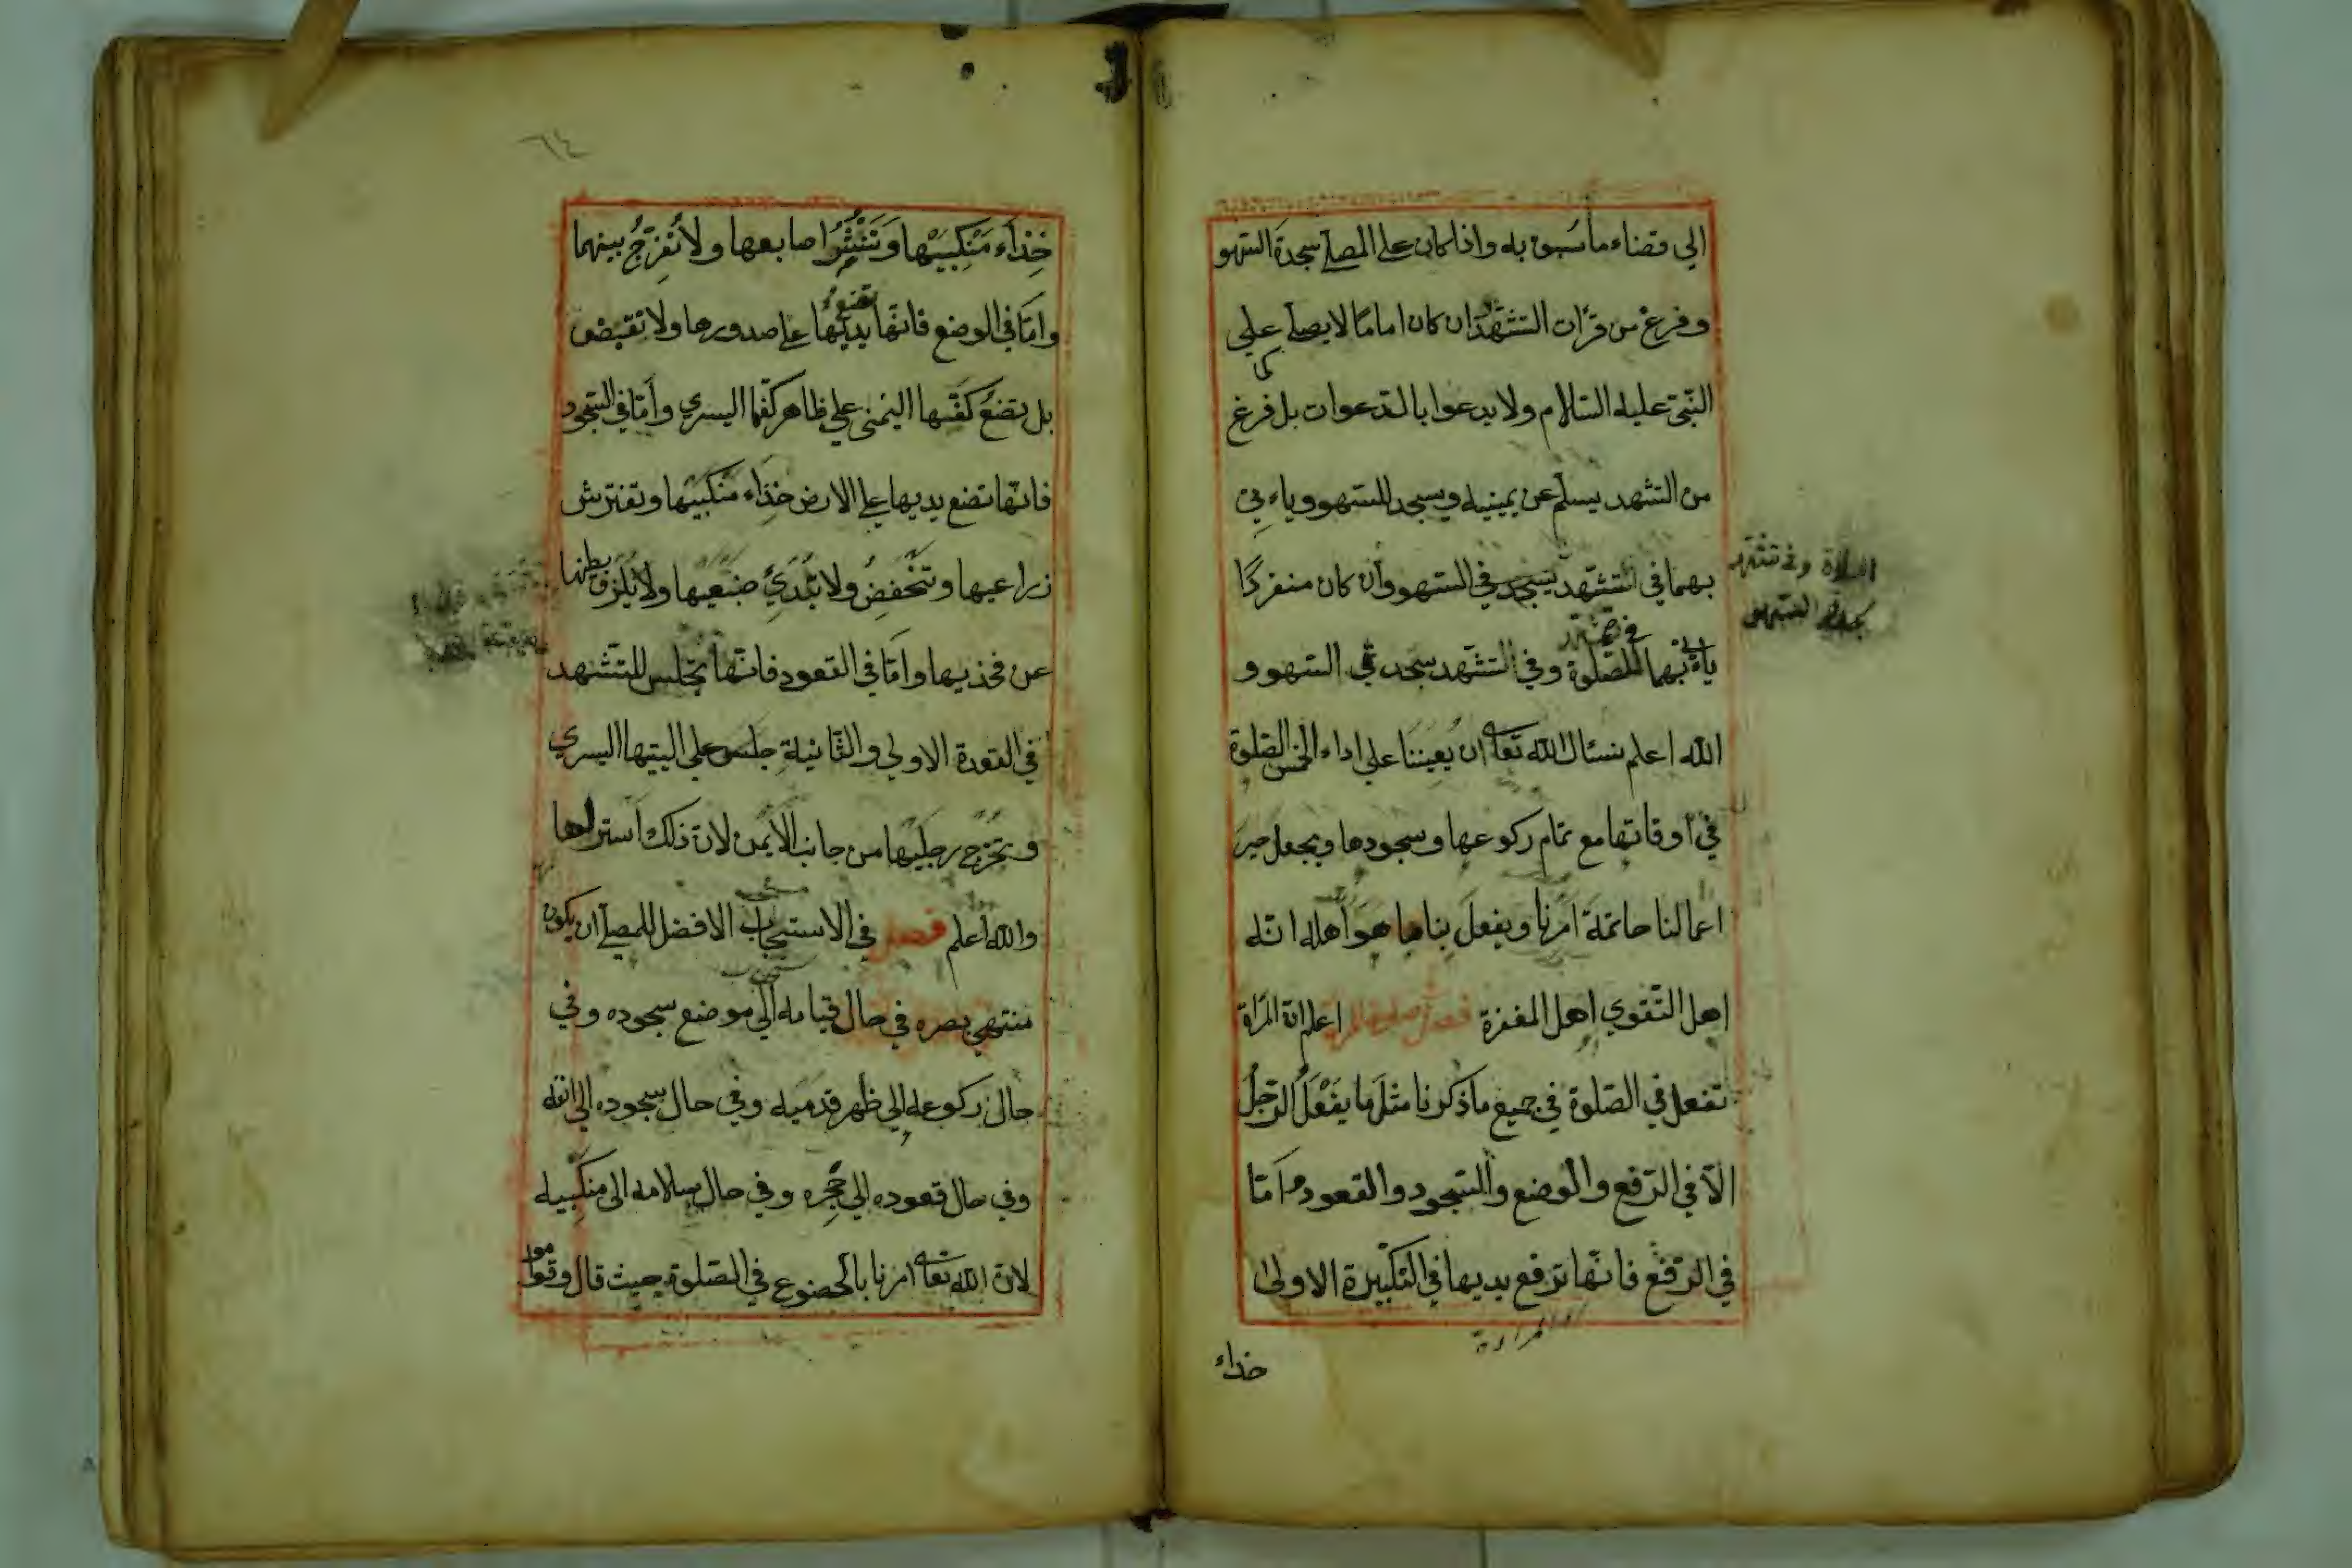 الي قضاء ما سُبق به واذا كان على المصلي سجدة السّهو
وفرغ من قرأت التشهّد ان كان امامًا لا يصلي علي
النّبيّ عليه السّلام ولا يدعوا بالدّعوات بل فرغ
من التشهد يسلّم عن يمينيه ويسجد للسّهو وياءتي
بهما في التشهّد يسجد في السّهو وان كان منفردًا
ياءتي بهما للصّلوة وفي التشهّد سجدتي السّهو و
الله اعلم نسئال الله تعالى ان يُعِيننا علي اداء الخمس الصّلوة
في اوقاتها مع تمام ركوعها وسجودها ويجعل خير
اعمالنا خاتمة امرنا ويفعلَ بنا ما هو أهله انّه
اهل التّقوي اهل المغفرة فصل صلوة المرأة اعلم انّ المرأة
تفعل في الصّلوة في جميع ما ذكرنا مثلَ ما يَفْعَلُ الرّجُلُ
الّا في الرّفع والوضع والسّجود والقعود امّا
في الرّفع فانّها ترفع يديها في التّكبيرة الاولىٰ
خذاء
الصلاة وفي تشهد
سجدتي السهو
٦٤
خِذاء مَنْكِبَيْها وتَنْشُرُ اصابعها ولا تُفرّجُ بينهما
وامّا في الوضع فانّها تضع يديها على صدورها ولا تقبض
بل تضعُ كفّها اليمنى علي ظاهر كفّها اليسري وأمّا في السّجود
فانّها تضع يديها على الارض خِذاء منكبيها وتفترش
زراعيها وتنخفضُ ولا تُبْدِيُ ضبعيها ولا يَلزق بطنها
عن فخذيها وامّا في القعود فانّها تجلس للتشهد
في القعدة الاولي والثّانية جلس علي اليتيها اليسري
وتخرج رجليها من جانب الأيمن لانّ ذلك استر لها
والله اعلم فصل في الاستحباب الافضل للمصلي ان يكون
منتهي بصره في حال قيامه الي موضع سجوده وفي
حال ركوعه الي ظهر قدميه وفي حال سجوده الي انفه
وفي حال قعوده الي حجره وفي حال سلامه الى منكبيه
لانّ الله تعالى امرنا بالخضوع في الصّلوة حيث قال وقوموا